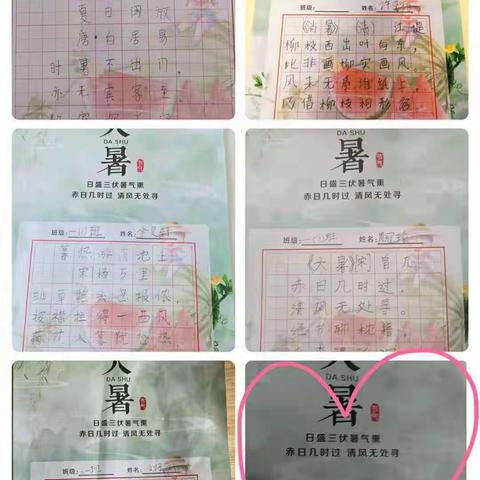 夏日闲放
唐·白居易
时暑不出门,
亦无宾客至
班级: 姓名:
柳枝西出叶向东,
此非画柳实画风,
巧借柳枝相形容。
大
DA SHU
暑
日盛三伏暑气熏
赤日几时过 清风无处寻
班级: 一(1)班 姓名:
暮热游荷池上
宋杨万里
细草摇头忽报侬,
披襟拦得一西风
荷花入暮犹愁热
大
DA SHU
暑
日盛三伏暑气熏
赤日几时过 清风无处寻
班级: 一(1)班 姓名:
《大暑》宋曾几
赤日几时过,
清风无处寻。
经书聊枕籍,
DA SHU
暑
日盛三伏暑气熏
赤日几时过 清风无处寻
班级: 姓名:
DA SHU
暑
日盛三伏暑气熏
赤日几时过 清风无处寻